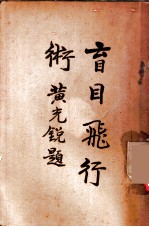 盲目飛行
術
黃光銳題